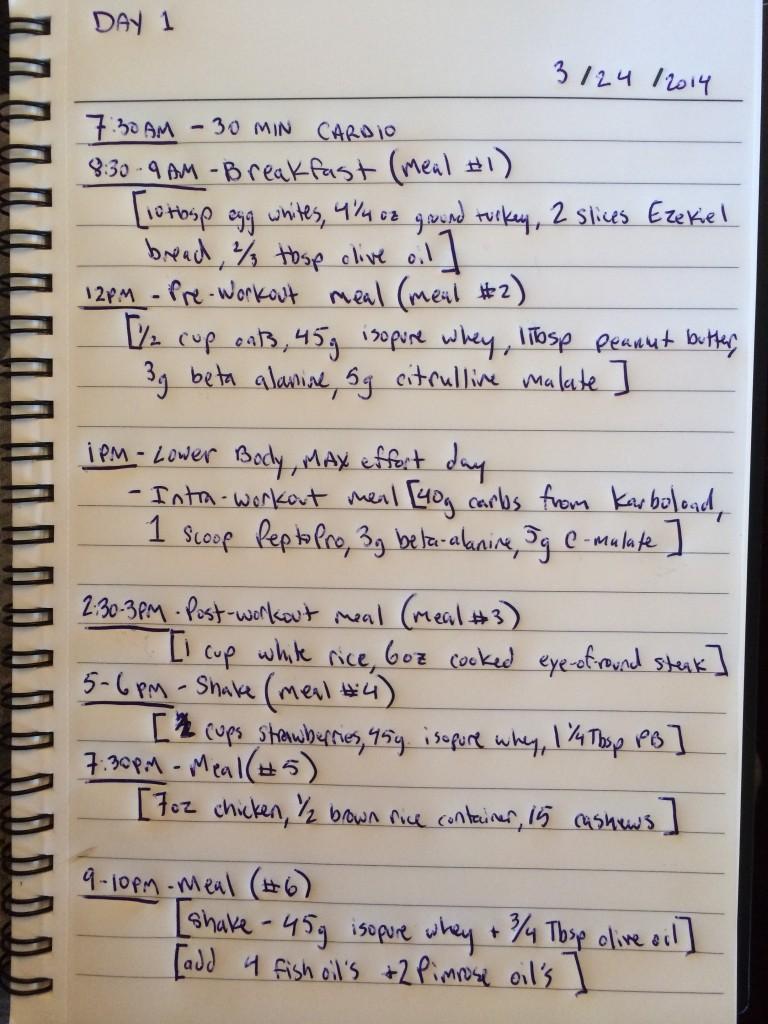 DAY 1
3/24/2014
7:30AM - 30 MIN CARDIO
8:30-9AM - Breakfast (meal #1)
[10tbsp egg whites, 4 1/4 oz ground turkey, 2 slices Ezekiel
bread, 2/3 tbsp olive oil]
12PM - Pre-workout meal (meal #2)
[1/2 cup oats, 45g isopure whey, 1Tbsp peanut butter,
3g beta alanine, 5g citrulline malate]
1PM - Lower Body, MAX effort day
- Intra-workout meal [40g carbs from Karboload,
1 scoop PeptoPro, 3g beta-alanine, 5g C-malate]
2:30-3PM - Post-workout meal (meal #3)
[1 cup white rice, 6oz cooked eye-of-round steak]
5-6PM - Shake (meal #4)
[2 cups strawberries, 45g isopure whey, 1 1/4 Tbsp PB]
7:30PM - Meal (#5)
[7oz chicken, 1/2 brown rice container, 15 cashews]
9-10PM - Meal (#6)
[shake - 45g isopure whey + 3/4 Tbsp olive oil]
[add 4 fish oil's +2 Pimrose oil's]